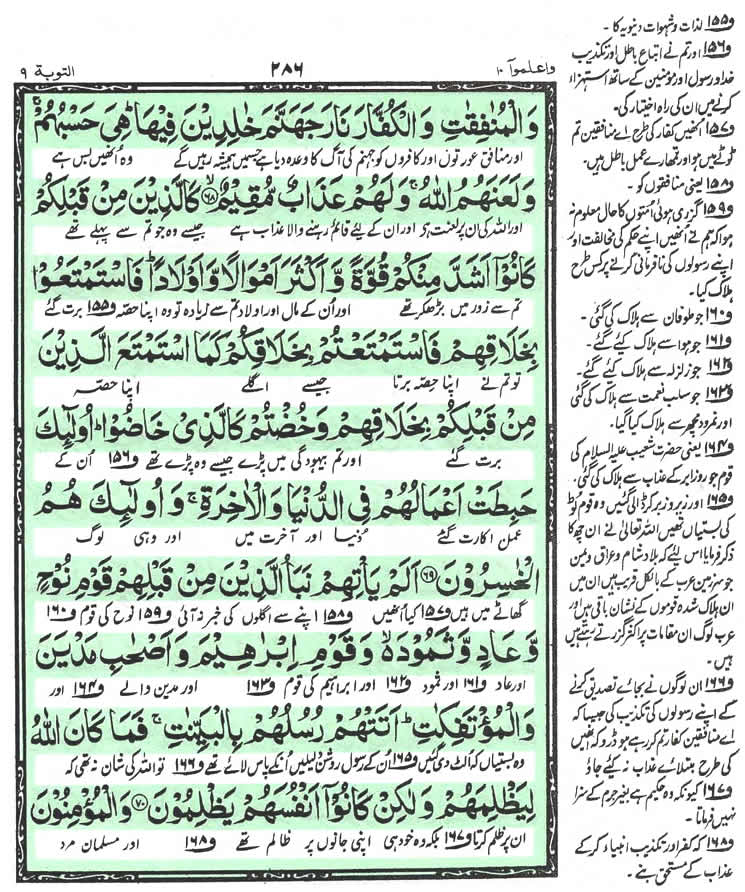 التوبة ٩
٢٨٦
واعلموآ ١٠
وَالْمُنٰفِقٰتِ وَالْكُفَّارَ نَارَ جَهَنَّمَ خٰلِدِيْنَ فِيْهَا ؕ هِيَ حَسْبُهُمْ ۚ
اور منافق عورتوں اور کافروں کو جہنم کی آگ کا وعدہ دیا ہے جس میں ہمیشہ رہیں گے وہ انھیں بس ہے
وَلَعَنَهُمُ اللّٰهُ ۚ وَلَهُمْ عَذَابٌ مُّقِيْمٌ ۙ﴿۶۸﴾ كَالَّذِيْنَ مِنْ قَبْلِكُمْ
اور اللہ کی ان پر لعنت ہے اور ان کے لیئے قائم رہنے والا عذاب ہے جیسے وہ جو تم سے پہلے تھے
كَانُوْۤا اَشَدَّ مِنْكُمْ قُوَّةً وَّاَكْثَرَ اَمْوَالًا وَّاَوْلَادًا ؕ فَاسْتَمْتَعُوْا
تم سے زور میں بڑھ کر تھے اور اُن کے مال اور اولاد تم سے زیادہ تو وہ اپنا حصّہ و۱۵۵ برت گئے
بِخَلَاقِهِمْ فَاسْتَمْتَعْتُمْ بِخَلَاقِكُمْ كَمَا اسْتَمْتَعَ الَّذِيْنَ
تو تم نے اپنا حصّہ برتا جیسے اگلے اپنا حصّہ
مِنْ قَبْلِكُمْ بِخَلَاقِهِمْ وَخُضْتُمْ كَالَّذِيْ خَاضُوْا ؕ اُولٰٓئِكَ
برت گئے اور تم بیہودگی میں پڑے جیسے وہ پڑے تھے و۱۵۶ اُن کے
حَبِطَتْ اَعْمَالُهُمْ فِي الدُّنْيَا وَالْاٰخِرَةِ ۚ وَاُولٰٓئِكَ هُمُ
عمل اکارت گئے دُنیا اور آخرت میں اور وہی لوگ
الْخٰسِرُوْنَ ﴿۶۹﴾ اَلَمْ يَاْتِهِمْ نَبَاُ الَّذِيْنَ مِنْ قَبْلِهِمْ قَوْمِ نُوْحٍ
گھاٹے میں ہیں و۱۵۷ کیا اُنھیں و۱۵۸ اپنے سے اگلوں کی خبر نہ آئی و۱۵۹ نوح کی قوم و۱۶۰
وَّعَادٍ وَّثَمُوْدَ ۙ وَقَوْمِ اِبْرٰهِيْمَ وَاَصْحٰبِ مَدْيَنَ
اور عاد و۱۶۱ اور ثمود و۱۶۲ اور ابراہیم کی قوم و۱۶۳ اور مدین والے و۱۶۴ اور
وَالْمُؤْتَفِكٰتِ ؕ اَتَتْهُمْ رُسُلُهُمْ بِالْبَيِّنٰتِ ۚ فَمَا كَانَ اللّٰهُ
وہ بستیاں کہ الٹ دی گئیں و۱۶۵ اُن کے رسول روشن دلیلیں اُنکے پاس لائے تھے و۱۶۶ تو اللہ کی شان نہ تھی کہ
لِيَظْلِمَهُمْ وَلٰكِنْ كَانُوْۤا اَنْفُسَهُمْ يَظْلِمُوْنَ ﴿۷۰﴾ وَالْمُؤْمِنُوْنَ
ان پر ظلم کرتا و۱۶۷ بلکہ وہ خود ہی اپنی جانوں پر ظالم تھے و۱۶۸ اور مسلمان مرد
و۱۵۵ لذات و شہوات دنیویہ کا۔
و۱۵۶ اور تم نے اتباعِ باطل اور تکذیب
خدا و رسول اور مؤمنین کے ساتھ استہزاء
کرنے میں ان کی راہ اختیار کی۔
و۱۵۷ انھیں کفار کی طرح اے منافقین تم
ٹوٹے میں ہو اور تمھارے عمل باطل ہیں۔
و۱۵۸ یعنی منافقوں کو۔
و۱۵۹ گزری ہوئی اُمتوں کا حال معلوم نہ
ہوا کہ ہم نے اُنھیں اپنے حکم کی مخالفت اور
اپنے رسولوں کی نافرمانی کرنے پر کس طرح
ہلاک کیا۔
و۱۶۰ جو طوفان سے ہلاک کی گئی۔
و۱۶۱ جو ہوا سے ہلاک کیے گئے۔
و۱۶۲ جو زلزلہ سے ہلاک کیے گئے۔
و۱۶۳ جو سلبِ نعمت سے ہلاک کی گئی
اور نمرود مچھر سے ہلاک کیا گیا۔
و۱۶۴ یعنی حضرت شعیب علیہ السلام کی
قوم جو روزِ ابر کے عذاب سے ہلاک کی گئی۔
و۱۶۵ اور زیر و زبر کر ڈالی گئیں وہ قومِ لُوط
کی بستیاں تھیں اللہ تعالیٰ نے ان چھ کا
ذکر فرمایا اس لیئے کہ بلاد شام و عراق و یمن
جو سرزمینِ عرب کے بالکل قریب ہیں ان میں
ان ہلاک شدہ قوموں کے نشان باقی ہیں اور
عرب لوگ ان مقامات پر اکثر گزرتے رہتے
ہیں۔
و۱۶۶ ان لوگوں نے بجائے تصدیق کرنے
کے اپنے رسولوں کی تکذیب کی جیسا کہ
اے منافقین کفار تم کر رہے ہو ڈرو کہ انھیں
کی طرح مبتلائے عذاب نہ کیے جاؤ
و۱۶۷ کیونکہ وہ حکیم ہے بغیر جرم کے سزا
نہیں فرماتا۔
و۱۶۸ کہ کفر اور تکذیبِ انبیاء کر کے
عذاب کے مستحق بنے۔